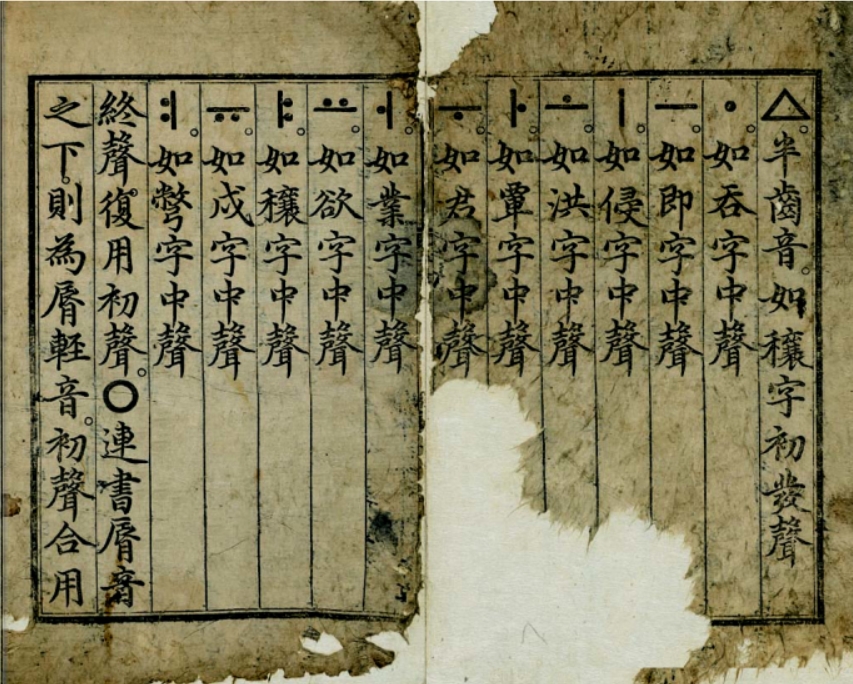 ㅿ。半齒音。如穰字初發聲
ㆍ。如吞字中聲
ㅡ。如即字中聲
ㅣ。如侵字中聲
ㅗ。如洪字中聲
ㅏ。如覃字中聲
ㅜ。如君字中聲
ㅓ。如業字中聲
ㅛ。如欲字中聲
ㅑ。如穰字中聲
ㅠ。如戌字中聲
ㅕ。如彆字中聲
終聲復用初聲。○連書脣音
之下。則為脣輕音。初聲合用